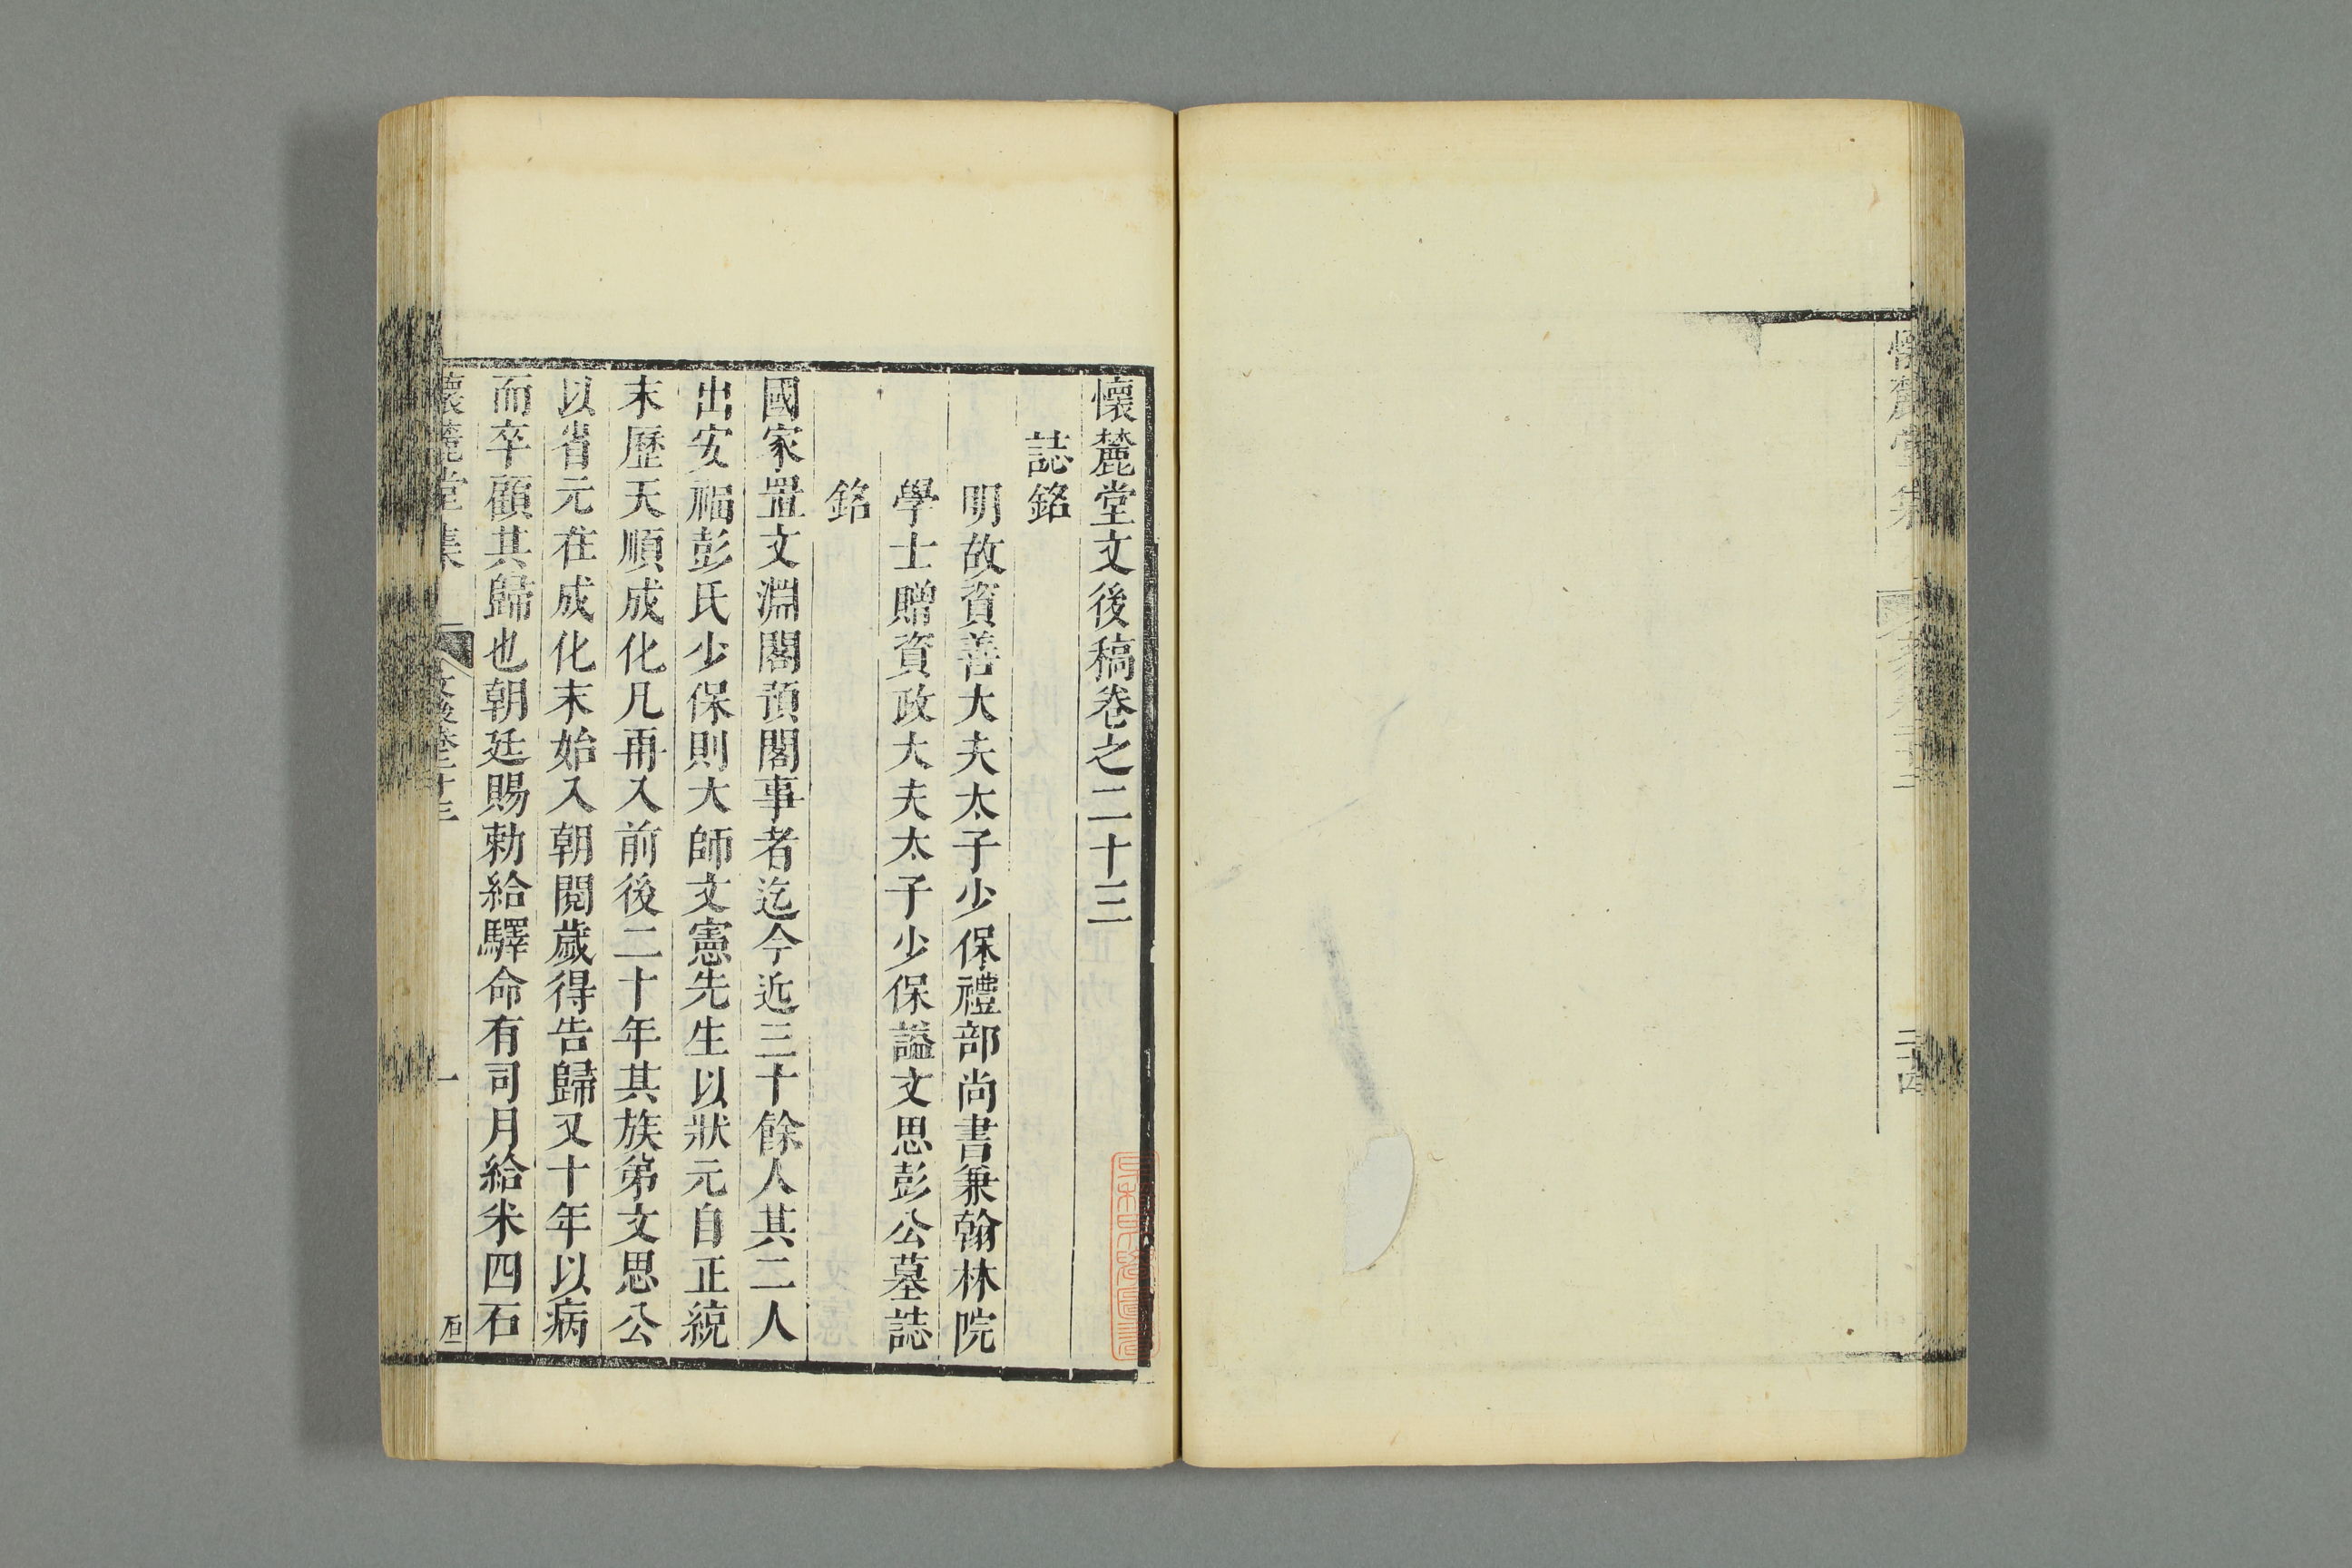 懷麓堂集
二十四
懷麓堂文後稿卷之二十三
誌銘
明故資善大夫太子少保禮部尚書兼翰林院
學士贈資政大夫太子少保謚文思彭公墓誌
銘
國家置文淵閣預閣事者迄今近三十餘人其二人
出安福彭氏少保則大師文憲先生以狀元自正統
末歷天順成化凡再入前後二十年其族弟文思公
以省元在成化末始入朝閱歲得告歸又十年以病
而卒顧其歸也朝廷賜勅給驛命有司月給米四石
懷麓堂集 文後卷二十三 一